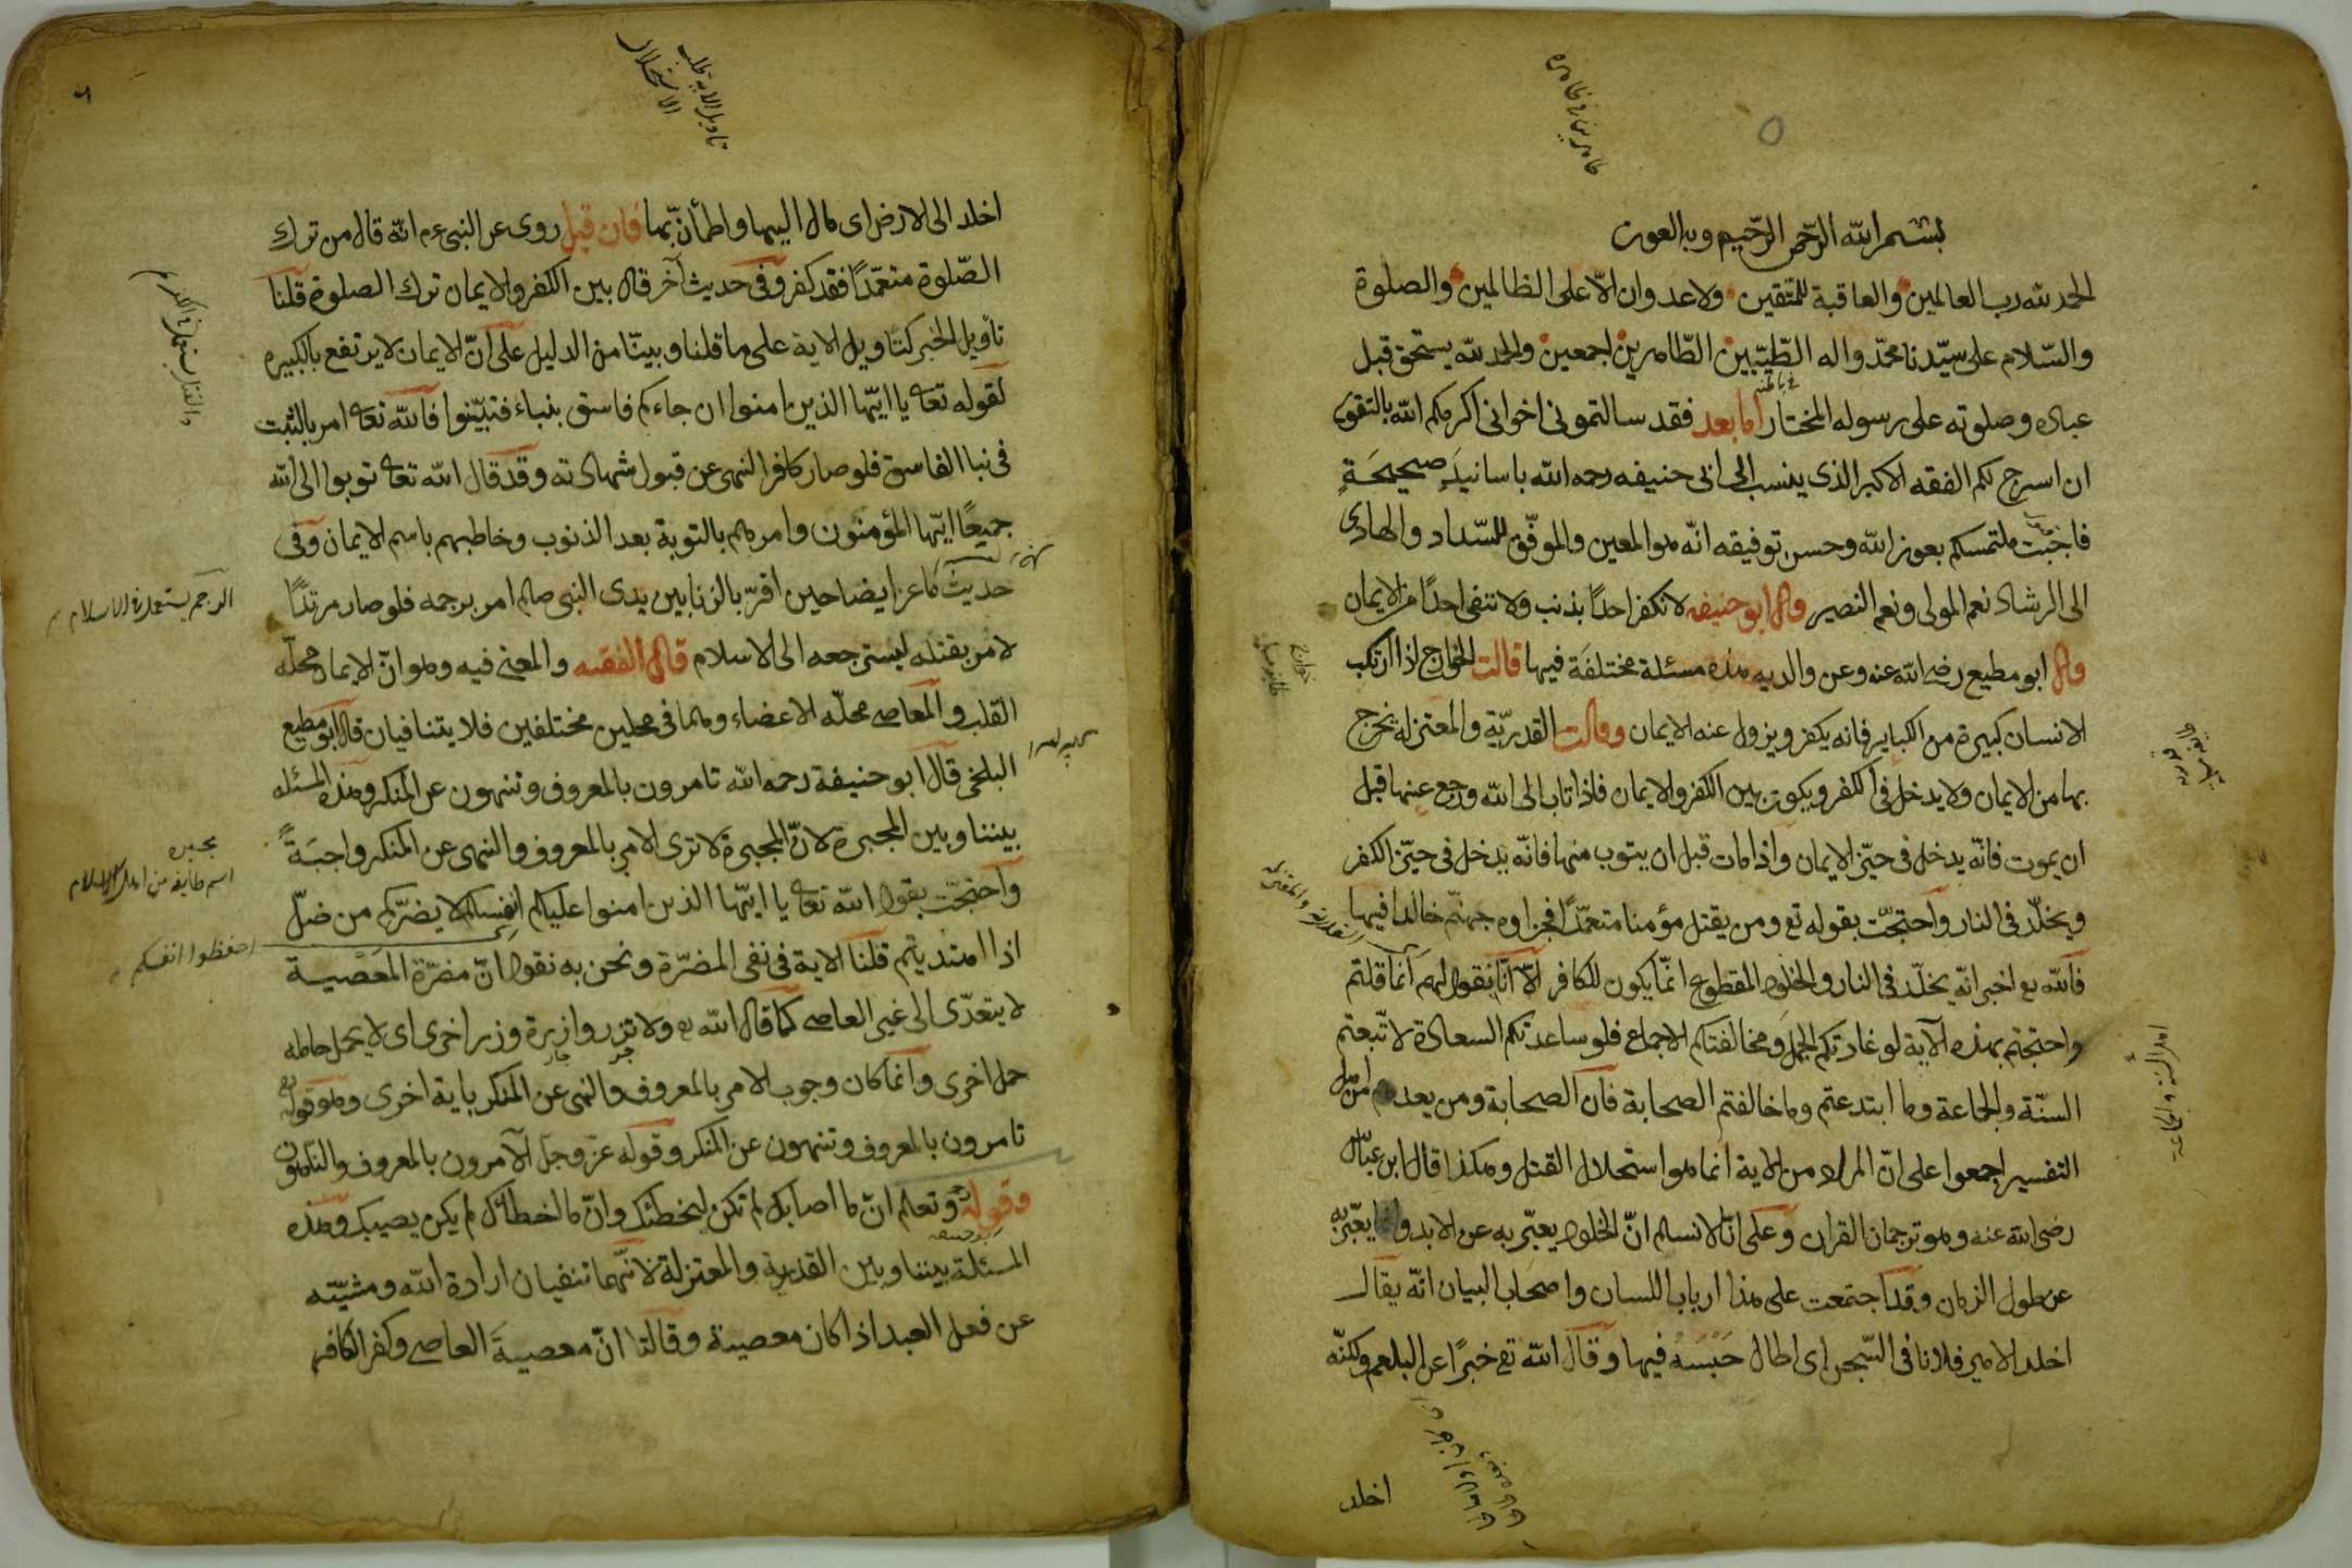 بسم الله الرحمن الرحيم وبه العون
الحمد لله رب العالمين والعاقبة للمتقين ولا عدوان الّا على الظالمين والصلوة
والسّلام على سيّدنا محمّد واله الطّيّبين الطّاهرين اجمعين والحمد لله يستحق قبل
عباده وصلوته على رسوله المختار اما بعد فقد سالتمونى اخوانى اكرمكم الله بالتقوى
ان اسرح لكم الفقه الاكبر الذى ينسب الى ابى حنيفه رحمه الله باسانيد صحيحة
فاجبت ملتمسكم بعون الله وحسن توفيقه انّه هو المعين والموفّق للسّداد والهادى
الى الرشاد نعم المولى ونعم النصير قال ابو حنيفه لا نكفر احداً بذنب ولا ننفى احداً من الايمان
قال ابو مطيع رضى الله عنه وعن والديه هذه مسئلة مختلفة فيها قالت الخوارج اذا ارتكب
الانسان كبيرة من الكباير فانه يكفر ويزول عنه الايمان وقالت القدريّة والمعتزله يخرج
بها من الايمان ولا يدخل فى الكفر ويكون بين الكفر والايمان فاذا تاب الى الله ورجع عنها قبل
ان يموت فانّه يدخل فى حيّز الايمان واذا مات قبل ان يتوب منها فانّه يدخل فى حيّز الكفر
ويخلّد فى النار واحتجّت بقوله تع ومن يقتل مؤمنا متعمّداً فجزاوه جهنّم خالدا فيها
فالله تع اخبر انّه يخلّد فى النار والخلود المقطوع انّما يكون للكافر الّا انّا نقول لهم انما قلتم
واحتججتم بهذه الآية لو غادرتكم الجهل ومخالفتكم الاجماع فلو ساعدتكم السعادة لاتّبعتم
السنّة والجماعة وما ابتدعتم وما خالفتم الصحابة فان الصحابة ومن بعدهم من اهل
التفسير اجمعوا على انّ المراد من الاية انما هو استحلال القتل وهكذا قال ابن عباس
رضى الله عنه وهو ترجمان القران وعلى انّا لا نسلم انّ الخلود يعبّر به عن الابد وانما يعبّر به
عن طول الزمان وقد اجتمعت على هذا ارباب اللسان واصحاب البيان انّه يقال
اخلد الامير فلانا فى السّجن اى اطال حَبْسَهُ فيها وقال الله تع خبرًا عن البلعم ولكنّه
اخلد
اخلد الى الارض اى مال اليها واطمأنّ بها فان قيل روى عن النبى عم انّه قال من ترك
الصّلوة متعمّدًا فقد كفر وفى حديث آخر قال بين الكفر والايمان ترك الصلوة قلنا
تأويل الخبر كتاويل الاية على ما قلنا وبيّنّا من الدليل على انّ الايمان لا يرتفع بالكبيره
لقوله تعا يا ايّها الذين امنوا ان جاءكم فاسق بنباء فتبيّنوا فالله تعا امر بالثبت
فى نبا الفاسق فلو صار كافرا لنهى عن قبول شهادته وقد قال الله تعا توبوا الى الله
جميعًا ايّها المؤمنون وامرهم بالتوبة بعد الذنوب وخاطبهم باسم الايمان وفى
حديث ماعز ايضا حين اقرّ بالزنا بين يدى النبى صلم امر برجمه فلو صار مرتدًا
لامر بقتله ليسترجعه الى الاسلام قال الفقيه والمعنى فيه وهو انّ الايمان محلّه
القلب والمعاصى محلّه الاعضاء وهما فى محلين مختلفين فلا يتنافيان قال ابو مطيع
البلخى قال ابو حنيفة رحمه الله تامرون بالمعروف وتنهون عن المنكر وهذه المسئله
بيننا وبين المجبرة لانّ المجبرة لا ترى الامر بالمعروف والنهى عن المنكر واجبَةً
واحتجّت بقول الله تعا يا ايّها الذين امنوا عليكم انفسكم لا يضرّكم من ضلّ
اذا اهتديتم قلنا الاية فى نفى المضرّة ونحن به نقول انّ مضرّة المَعْصية
لا يتعدّى الى غير العاصى كما قال الله تع ولا تزر وازرة وزر اخرى اى لا يحمل حامله
حمل اخرى وانما كان وجوب الامر بالمعروف والنهى عن المنكر باية اخرى وهو قوله تع
تامرون بالمعروف وتنهون عن المنكر وقوله عزّ وجلّ الآمرون بالمعروف والناهون
وقوله وتعلم انّ ما اصابك لم تكن ليخطئك وانّ ما اخطأك لم يكن يصيبك وهذه
المسئلة بيننا وبين القدرية والمعتزلة لانّهما تنفيان ارادة الله ومشيّته
عن فعل العبد اذا كان معصية وقالتا انّ معصيةَ العاصى وكفر الكافر
الرجم يستعمل فى الاسلام
مجبره
اسم طايفه من اهل الاسلام
احفظوا انفسكم
اهل السنة والجماعة